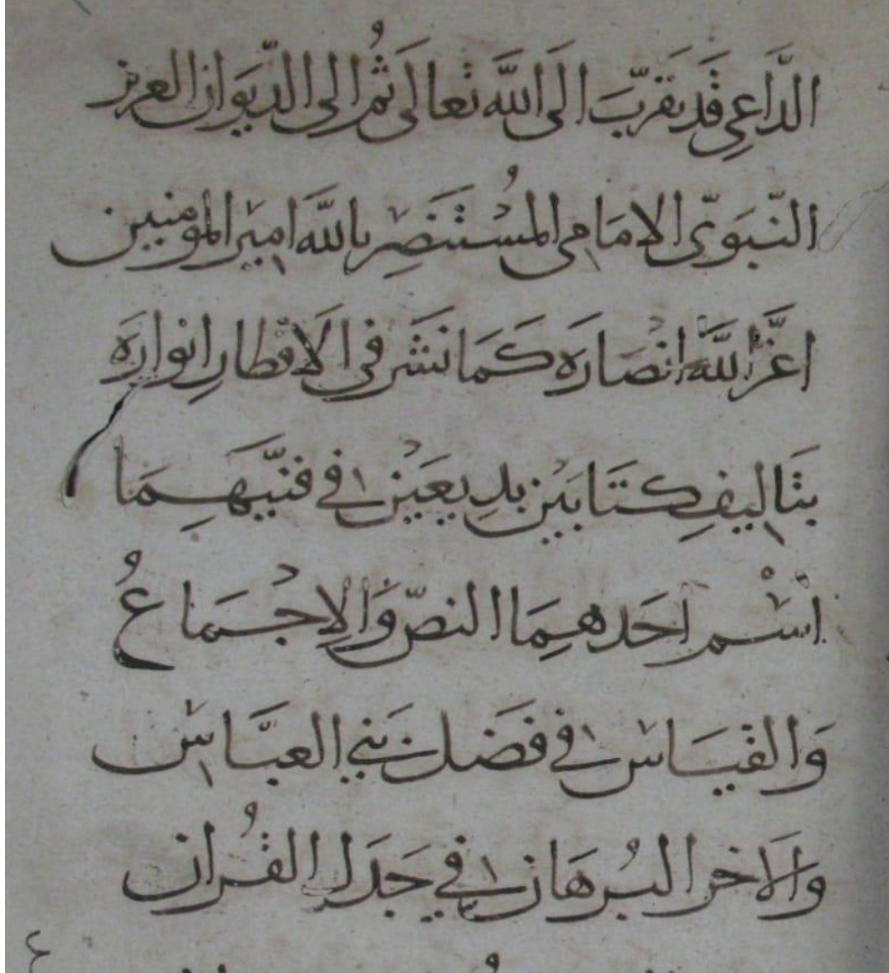 الدَّاعِي قَد تقَرّبَ الَى اللَّه تعالَى ثُم الى الدّيوَان العزيز
النّبَوَىّ الامَامى المُسْتَنْصِر بالله امير المومنين
اعَزَّ اللَّهُ انصَارَه كَمَا نَشَر في الاقطارِ انوارَه
بتَاليفِ كتَابَيْن بدِيعَيْن في فنّيهِمَا
اسْم احَدهِمَا النصّ وَالاِجْمَاعُ
وَالقيَاس في فضَل بَني العبَّاس
وَالاخر البُرهَان في جَدَل القُران